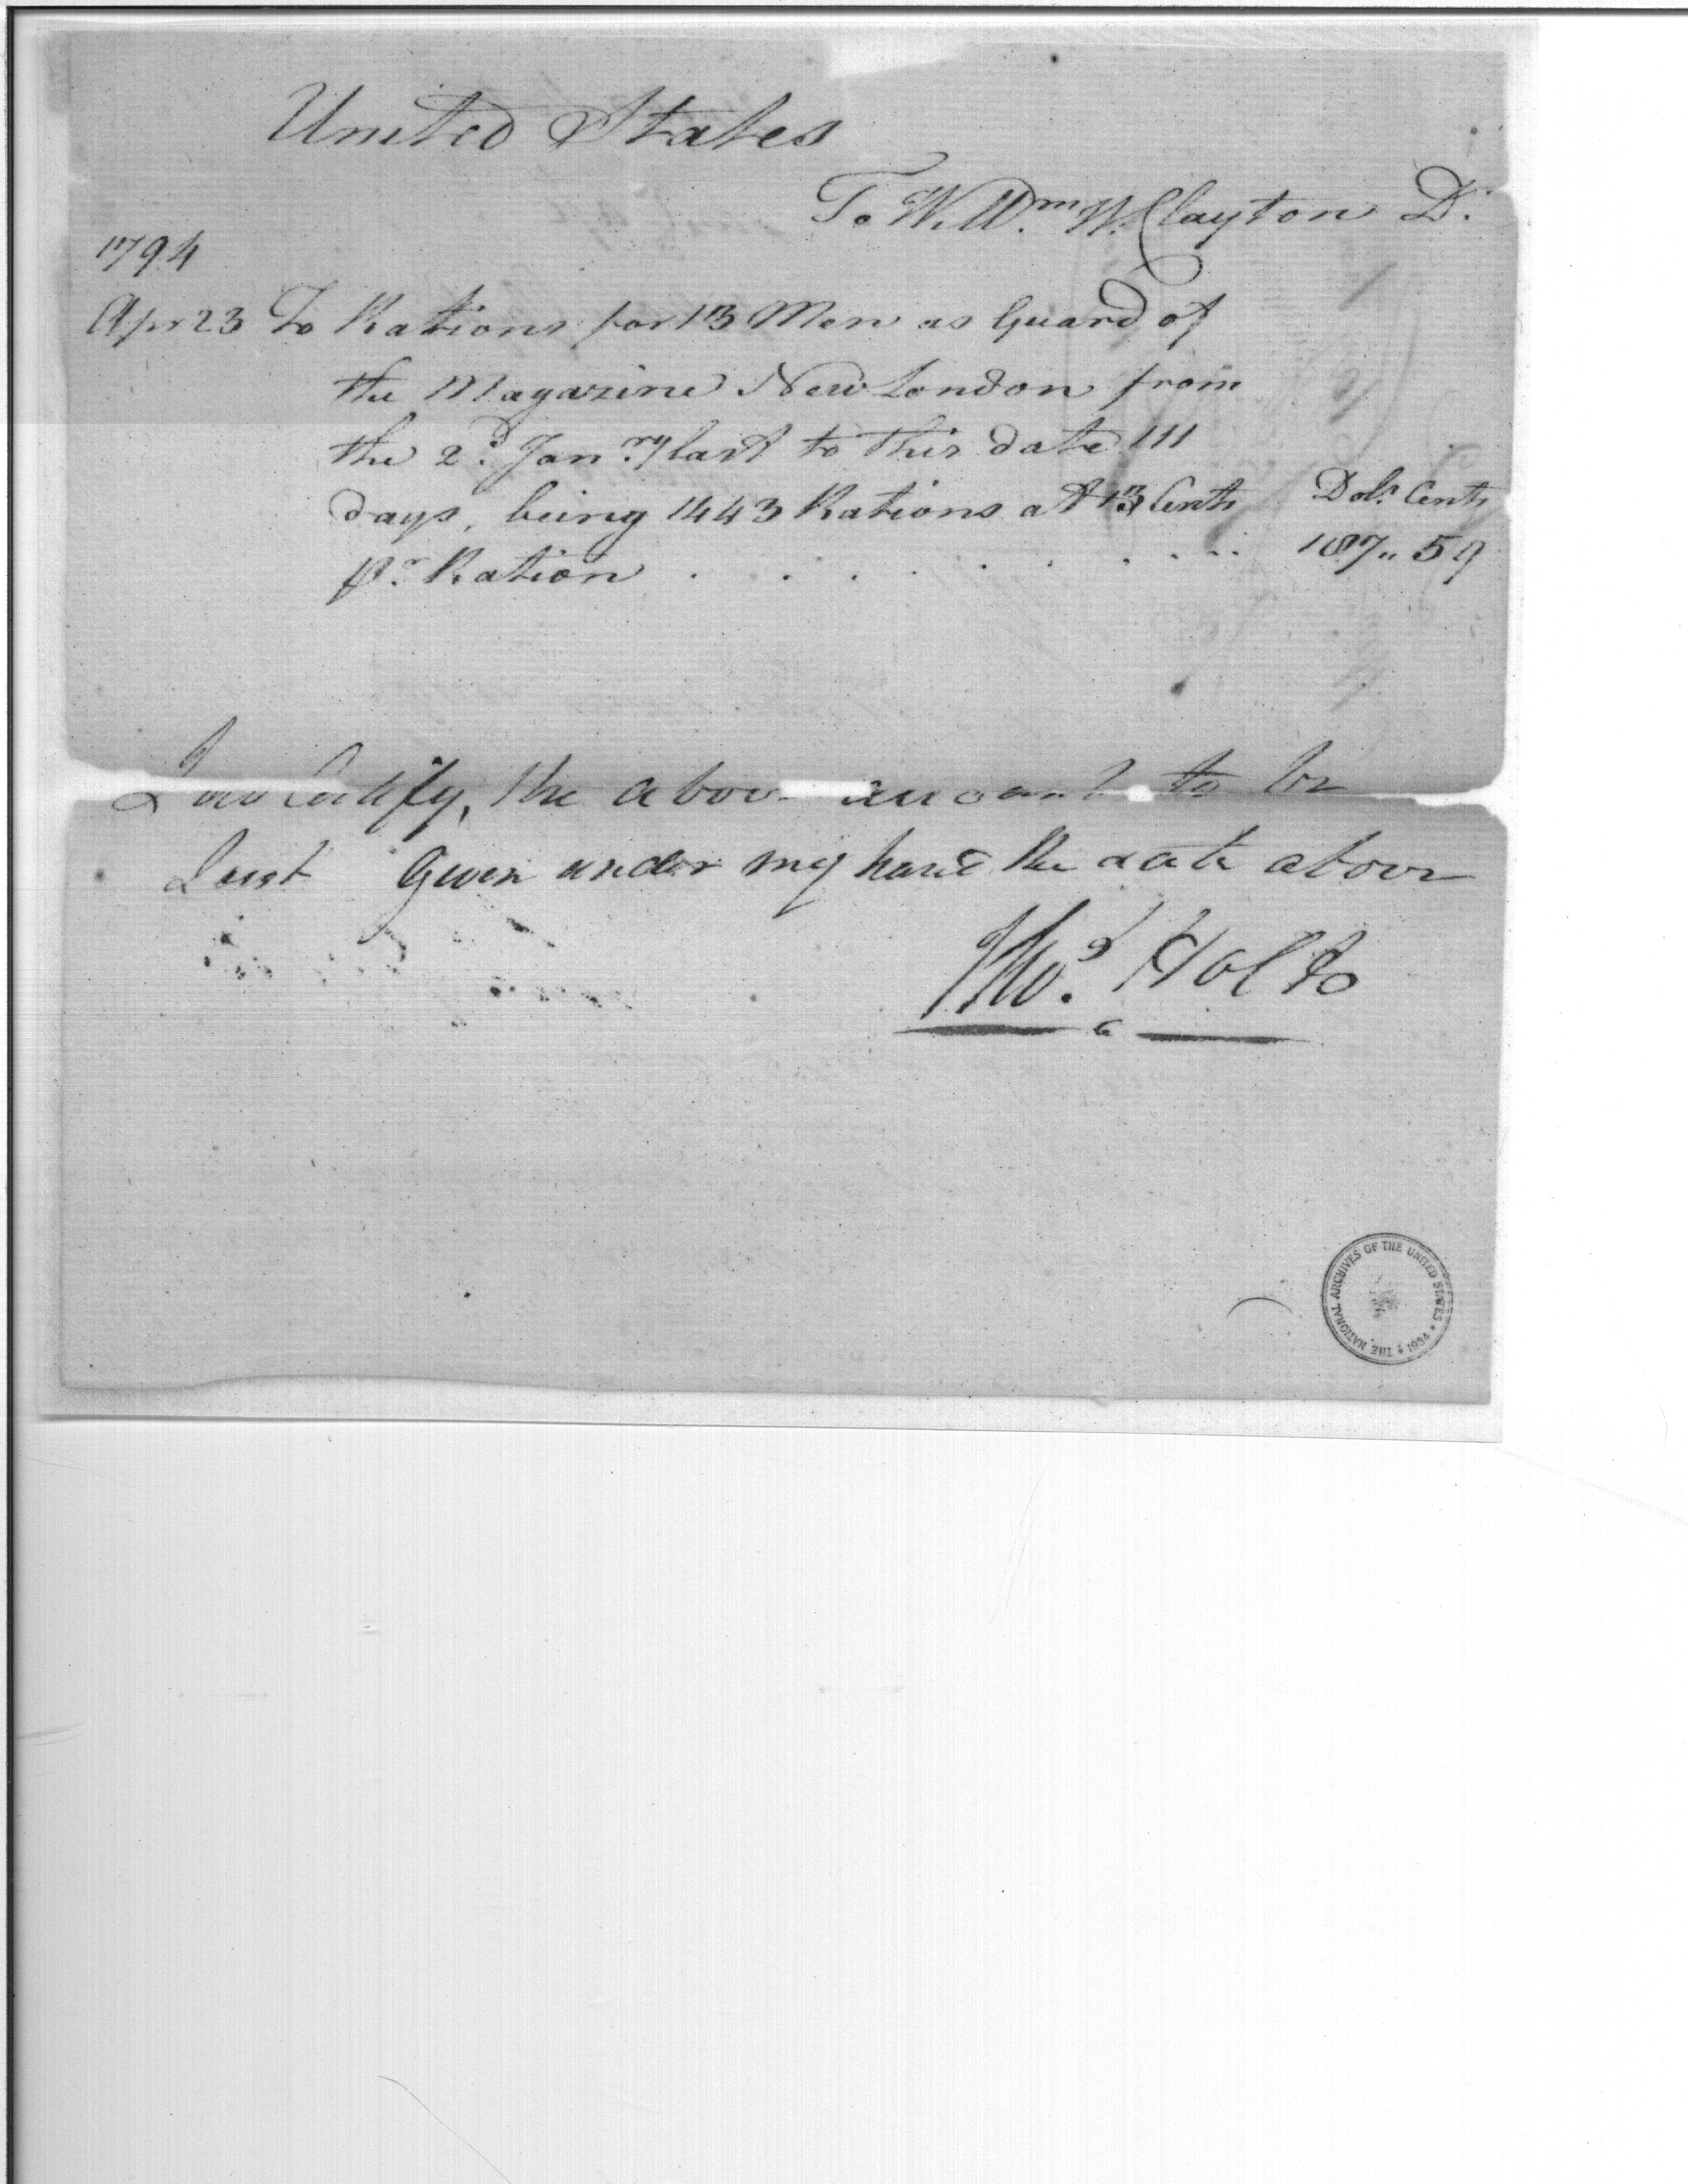 United States
To Wm. W. Clayton Dr.
1794
Apr 23 To Rations for 13 Men as Guard of
the Magazine New London from
the 2d. Janry. last to this date 111
days, being 1443 Rations at 13 Cents Dols. Cents
pr. Ration . . . . . . . . . . 187,, 59
I do Certify, the above account to be
Just Given under my hand the date above
Thos. Holt
THE NATIONAL ARCHIVES OF THE UNITED STATES * 1934 *